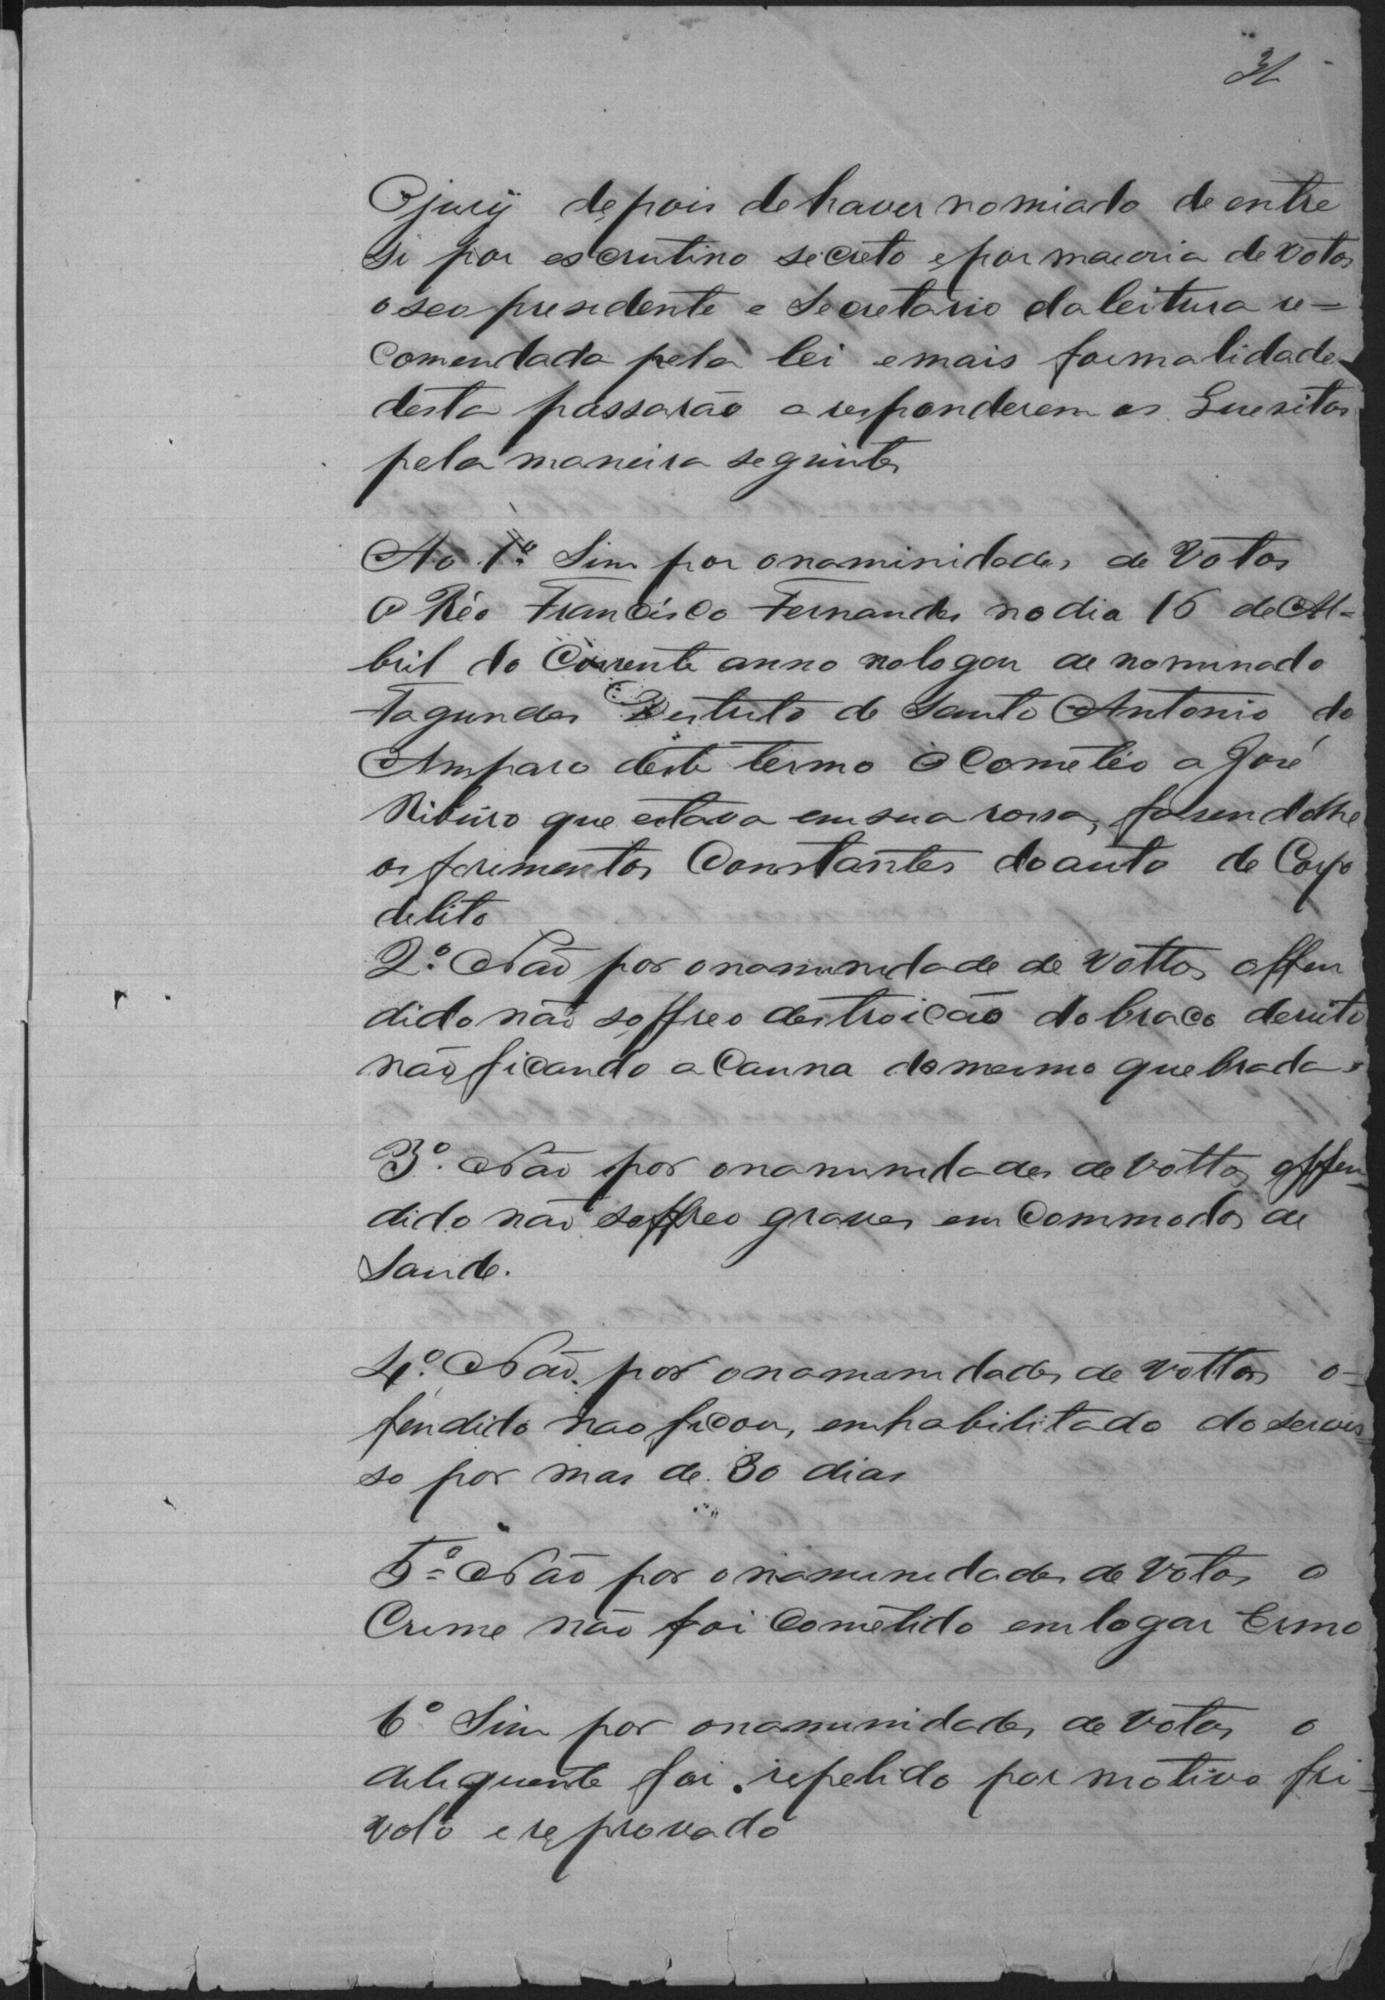 31
O jury depois de haver nomiado de entre
si por escrutino secreto e por maioria de votos
o seo presidente e Secretario da leitura re=
comendada pela lei e mais formalidades
desta passarão a responderem os Quesitos
pela maneira seguinte
Ao 1º Sim por onaminidades de Votos
O Réo Francisco Fernandes no dia 16 de A-
bril do Corrente anno no logar denominado
Fagundes Destrito de Santo Antonio do
Amparo deste termo acometeo a José
Ribeiro que estava em sua rossa, fasendolhe
os ferimentos Constantes do auto de Corpo
delito
2º Não por onamunidade de Vottos offen
dido não soffreo destroição do braço dereito
não ficando a Canna do mesmo quebrada.
3º Não por onamunidades de vottos offen-
dido não soffreo graves em Commodos de
Saude.
4º Não. por onamunidades de vottos o=
fendido não ficou, emhabilitado do servis-
so por mas de 30 dias
5º Não por onamunidades de Votos o
Crime não foi Cometido em logar Ermo
6º Sim por onamunidades de votos o
deliquente foi repelido por motivo fri-
volo e reprovado